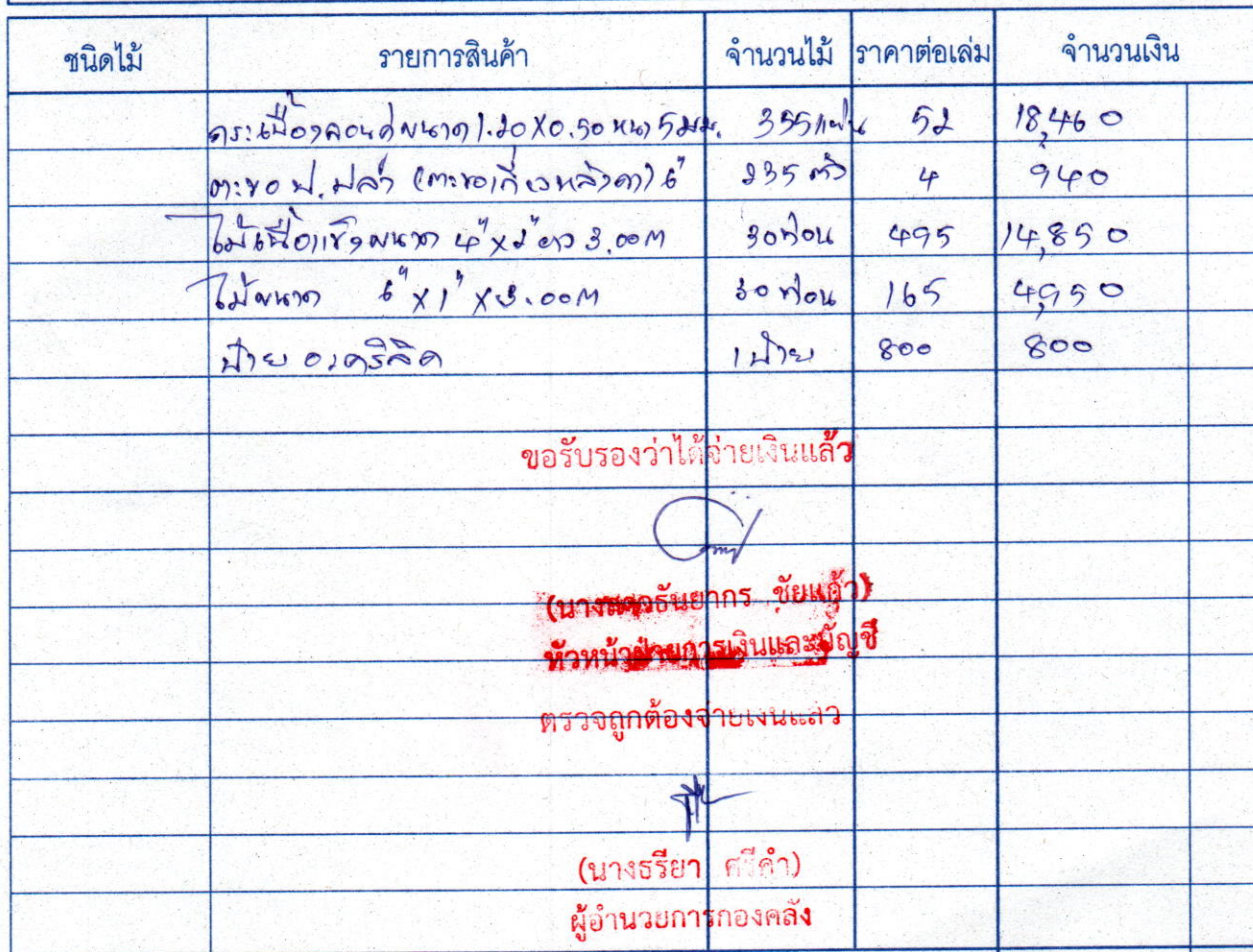 ชนิดไม้ รายการสินค้า จำนวนไม้ ราคาต่อเล่ม จำนวนเงิน
กระเบื้องลอนคู่ขนาด 1.20X0.50 หนา 5มม. 355แผ่น 52 18,460
ตะขอ ป.ปลา (ตะขอเกี่ยวหลังคา) 6" 235 ตัว 4 940
ไม้เนื้อแข็งขนาด 4"x2"ยาว 3.00m 30ท่อน 495 14,850
ไม้ขนาด 6"x1"x3.00m 30 ท่อน 165 4,950
ป้าย อะคริลิค 1ป้าย 800 800
ขอรับรองว่าได้จ่ายเงินแล้ว
(นางสาวธันยากร ชัยแก้ว)
หัวหน้าฝ่ายการเงินและบัญชี
ตรวจถูกต้องจ่ายเงินแล้ว
(นางธรียา ศรีคำ)
ผู้อำนวยการกองคลัง